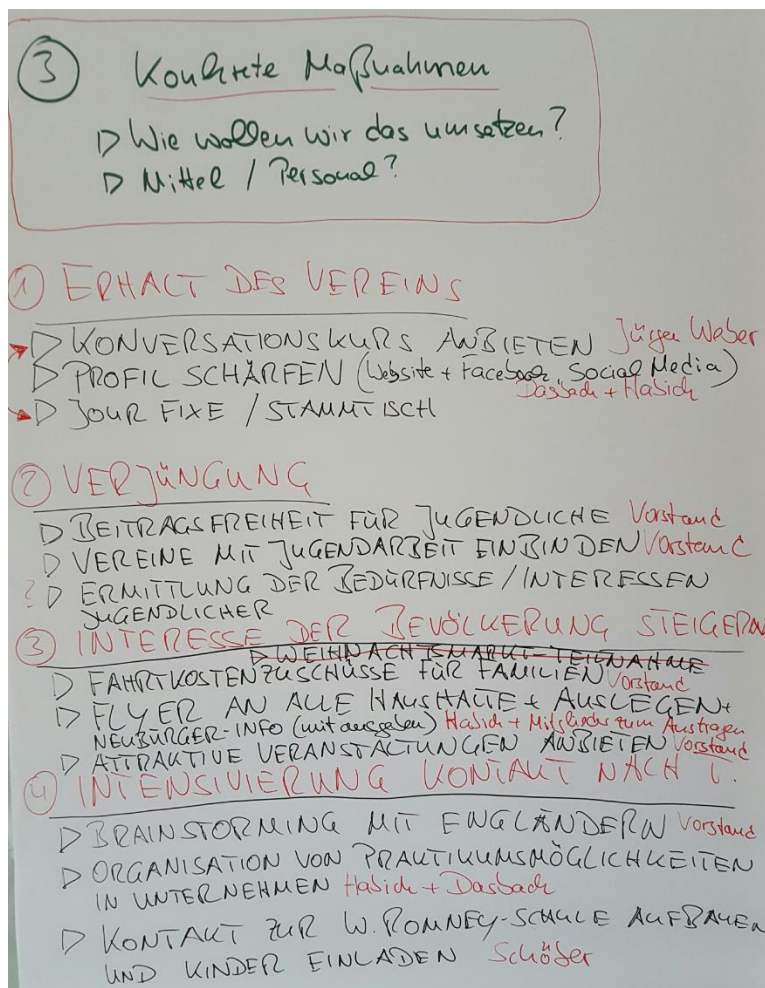 3 Konkrete Maßnahmen
▷ Wie wollen wir das umsetzen?
▷ Mittel / Personal?
1 ERHALT DES VEREINS
▷ KONVERSATIONSKURS ANBIETEN Jürgen Weber
▷ PROFIL SCHÄRFEN (Website + Facebook, Social Media)
Dasbach + Habich
▷ JOUR FIXE / STAMMTISCH
2 VERJÜNGUNG
▷ BEITRAGSFREIHEIT FÜR JUGENDLICHE Vorstand
▷ VEREINE MIT JUGENDARBEIT EINBINDEN Vorstand
? ▷ ERMITTLUNG DER BEDÜRFNISSE / INTERESSEN
JUGENDLICHER
3 INTERESSE DER BEVÖLKERUNG STEIGERN
▷ WEIHNACHTSMARKT-TEILNAHME
▷ FAHRTKOSTENZUSCHÜSSE FÜR FAMILIEN Vorstand
▷ FLYER AN ALLE HAUSHALTE + AUSLEGEN +
NEUBÜRGER-INFO (mit ausgeben) Habich + Mitglieder zum Austragen
▷ ATTRAKTIVE VERANSTALTUNGEN ANBIETEN Vorstand
4 INTENSIVIERUNG KONTAKT NACH
▷ BRAINSTORMING MIT ENGLÄNDERN Vorstand
▷ ORGANISATION VON PRAKTIKUMSMÖGLICHKEITEN
IN UNTERNEHMEN Habich + Dasbach
▷ KONTAKT ZUR W. ROMNEY-SCHULE AUFBAUEN
UND KINDER EINLADEN